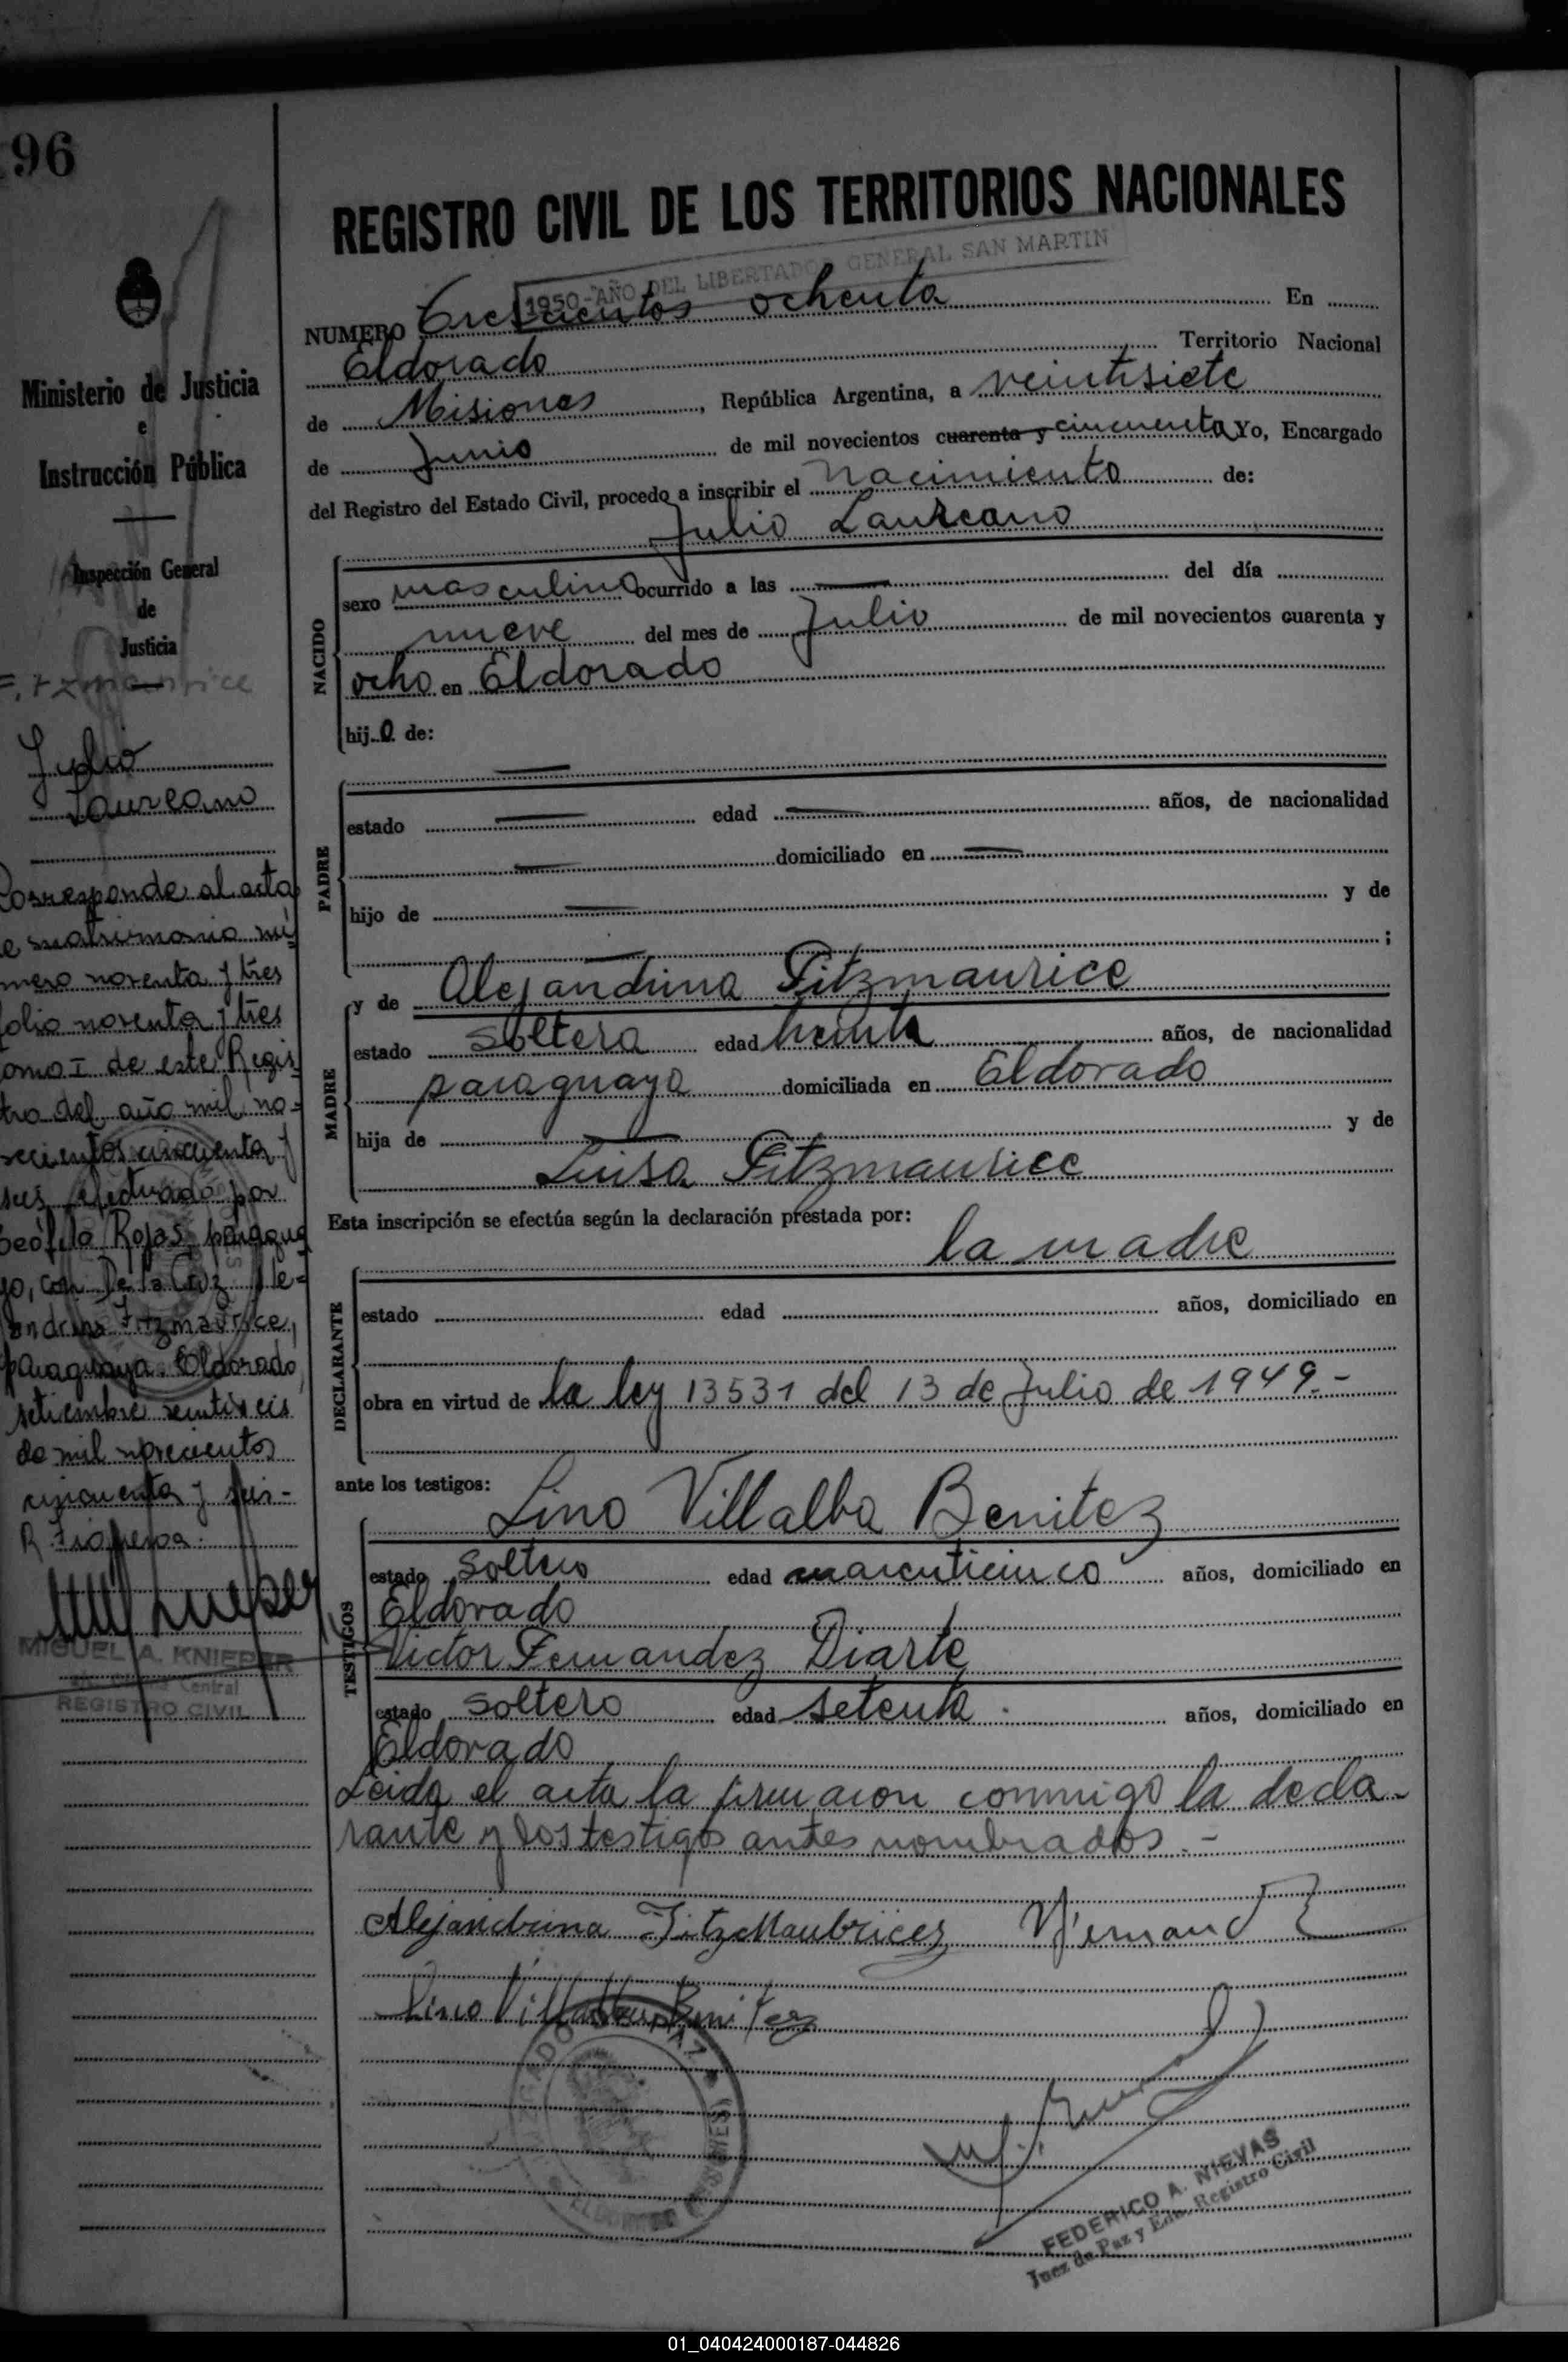 96
REGISTRO CIVIL DE LOS TERRITORIOS NACIONALES
1950-AÑO DEL LIBERTADOR GENERAL SAN MARTIN
NUMERO Trescientos ochenta En
Eldorado Territorio Nacional
de Misiones, República Argentina, a veintisiete
de Junio de mil novecientos cuarenta y cincuenta Yo, Encargado
del Registro del Estado Civil, procedo a inscribir el nacimiento de:
Julio Laureano
NACIDO
sexo masculino ocurrido a las — del día
nueve del mes de Julio de mil novecientos cuarenta y
ocho en Eldorado
hijo de:
—
PADRE
estado — edad — años, de nacionalidad
— domiciliado en —
hijo de — y de
— ;
MADRE
y de Alejandrina Fitzmaurice
estado soltera edad treinta años, de nacionalidad
paraguaya domiciliada en Eldorado
hija de — y de
Luisa Fitzmaurice
Esta inscripción se efectúa según la declaración prestada por:
la madre
DECLARANTE
estado edad años, domiciliado en
obra en virtud de la ley 13531 del 13 de Julio de 1949.-
ante los testigos:
Lino Villalba Benitez
TESTIGOS
estado soltero edad cuarenticinco años, domiciliado en
Eldorado
Victor Fernandez Diarte
estado soltero edad setenta años, domiciliado en
Eldorado
Leida el acta la firmaron conmigo la decla-
rante y los testigos antes nombrados.-
Alejandrina FitzMaubrices
Lino Villalba Benitez
FEDERICO A. NIEVAS
Juez de Paz y Enc. Registro Civil
Ministerio de Justicia
e
Instrucción Pública
Inspección General
de
Justicia
Fitzmaurice
Julio
Laureano
Corresponde al acta
e matrimonio nú-
mero noventa y tres
olio noventa y tres
omo I de este Regis
tro del año mil no-
vecientos cincuenta y
seis, efectuado por
eófilo Rojas, paragua
yo, con De la Cruz Ale-
andrina Fitzmaurice,
paraguaya. Eldorado,
setiembre veintiseis
de mil novecientos
cincuenta y seis-
R. Figueroa.
MIGUEL A. KNIEPER
Central
REGISTRO CIVIL
01_040424000187-044826